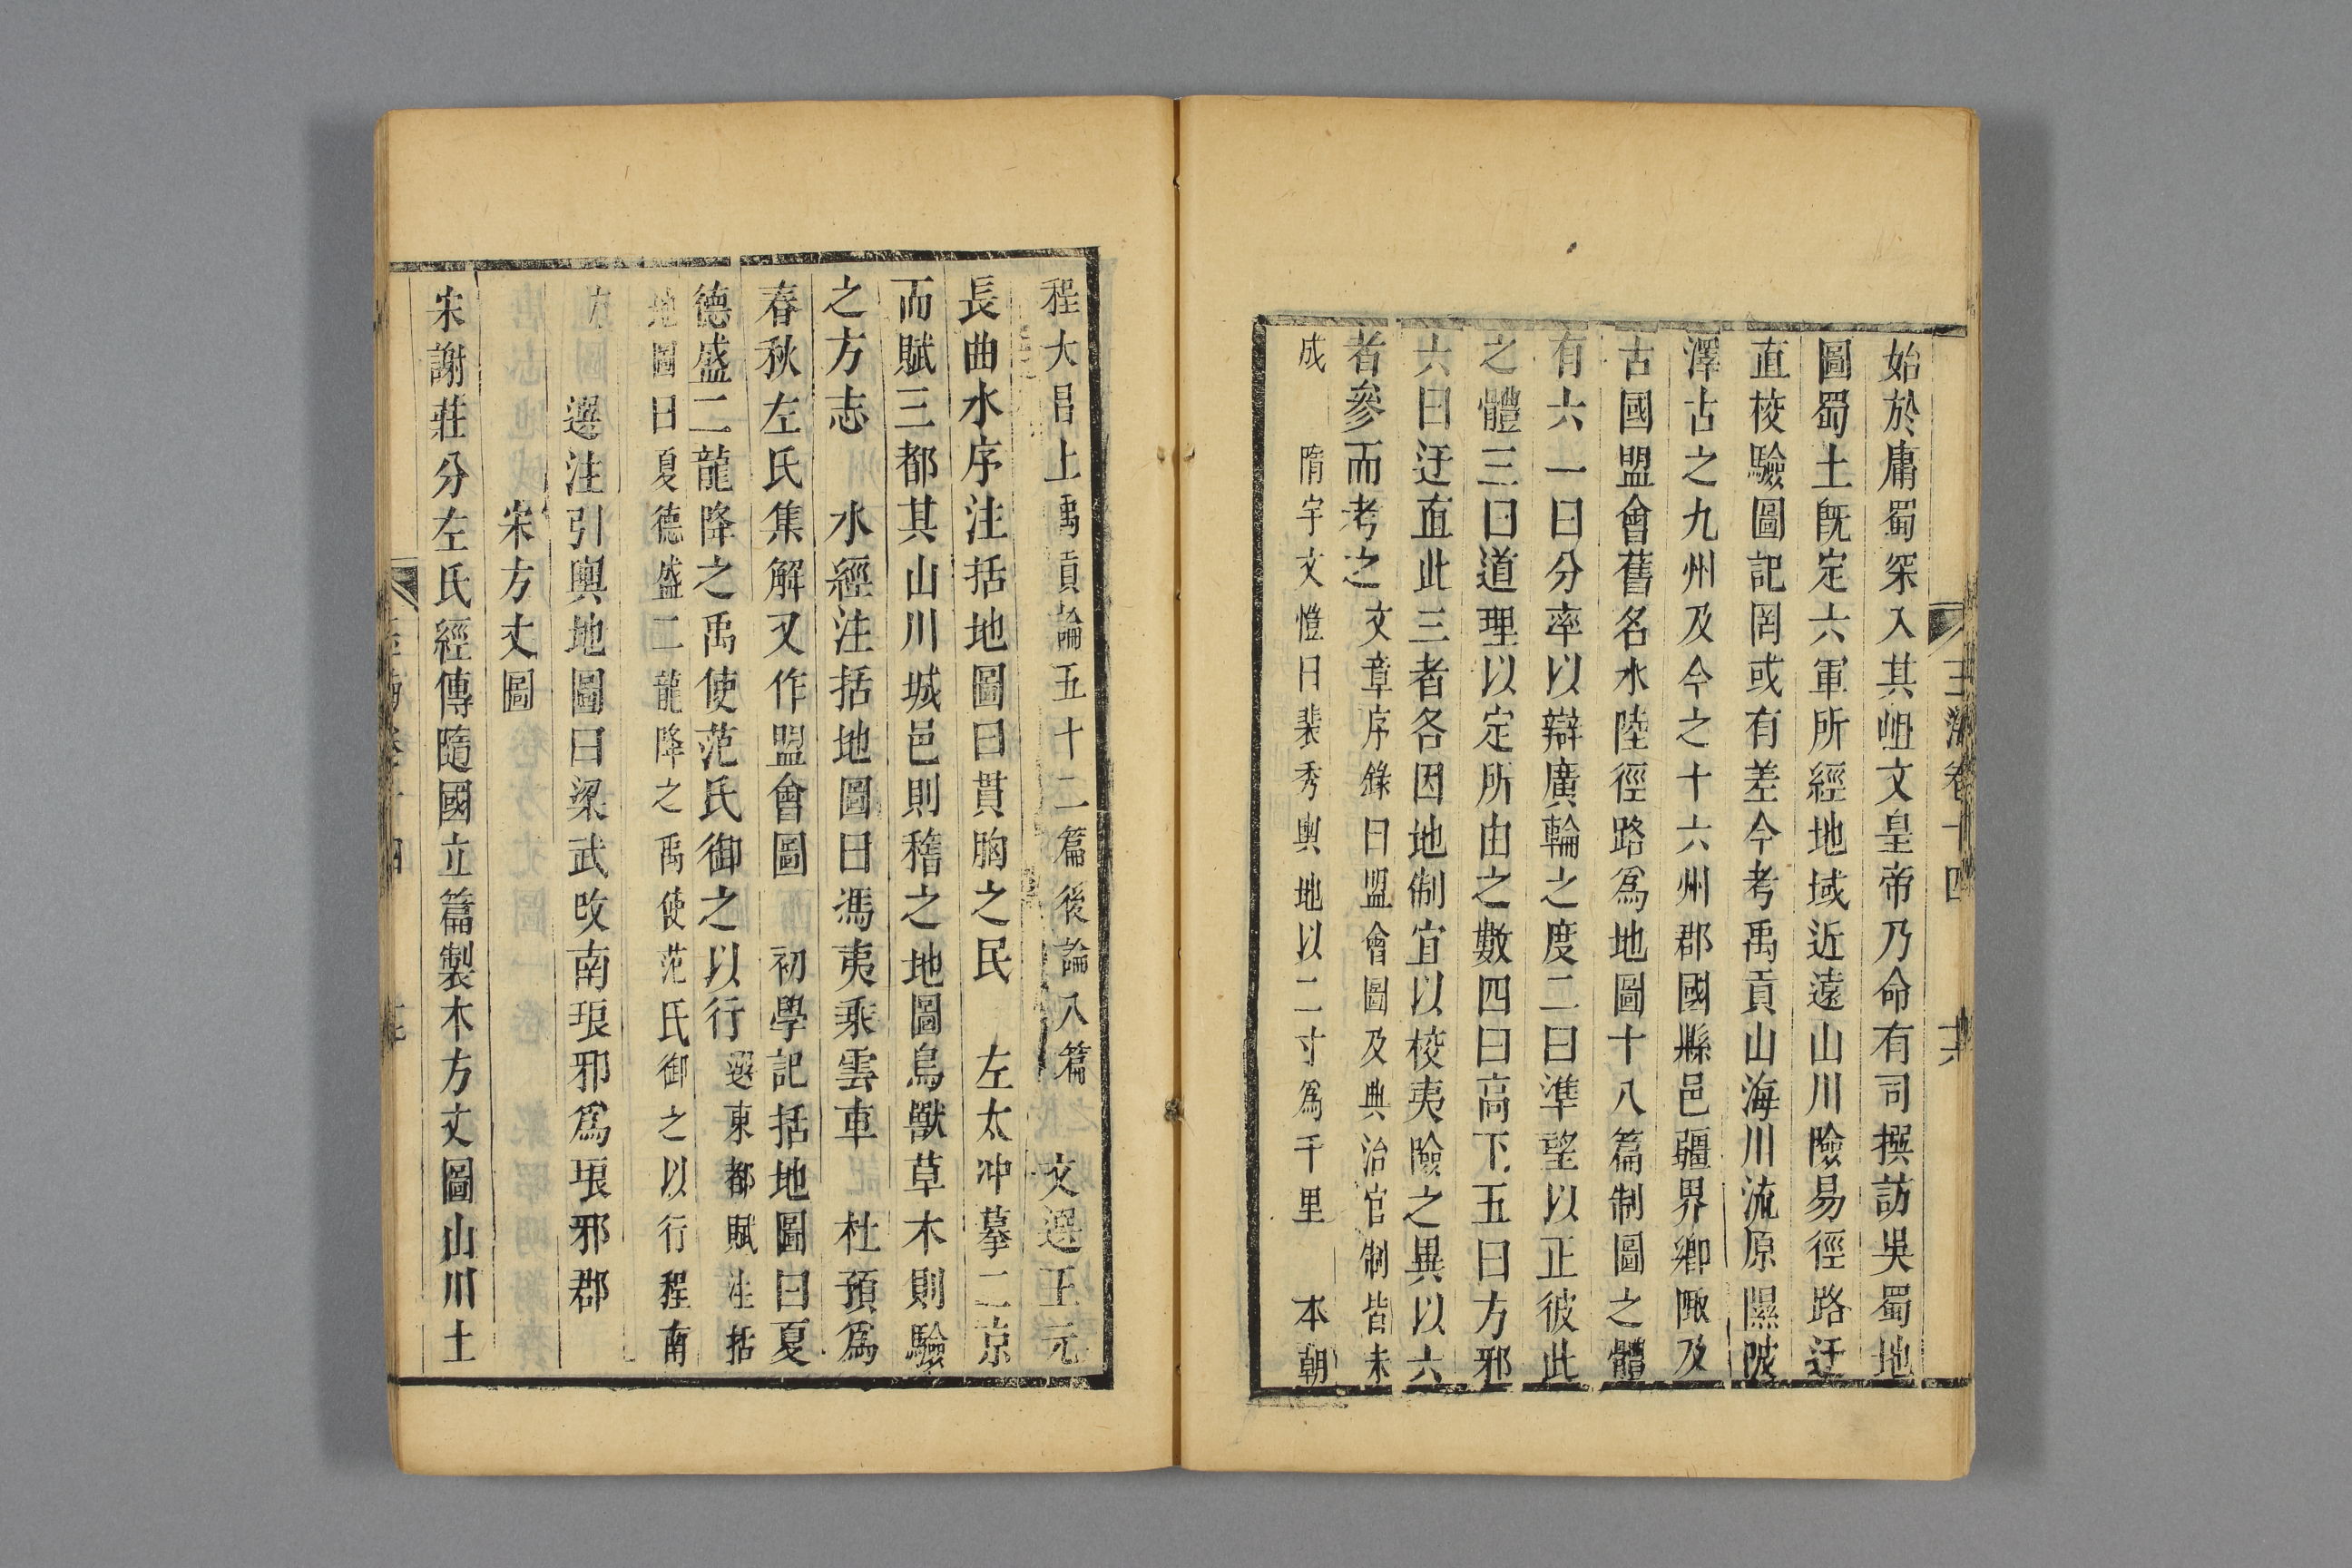 玉海卷十四 十六
始於庸蜀罙入其岨文皇帝乃命有司撰訪吳蜀地
圖蜀土旣定六軍所經地域近遠山川險易徑路迂
直校驗圖記罔或有差今考禹貢山海川流原隰陂
澤古之九州及今之十六州郡國縣邑疆界鄉陬及
古國盟會舊名水陸徑路爲地圖十八篇制圖之體
有六一曰分率以辯廣輪之度二曰準望以正彼此
之體三曰道理以定所由之數四曰高下五曰方邪
六曰迂直此三者各因地制宜以校夷險之異以六
者參而考之 文章序錄曰盟會圖及典治官制皆未
成 隋宇文愷曰裴秀輿地以二寸爲千里 本朝
程大昌上禹貢論五十二篇後論八篇 文選王元
長曲水序注括地圖曰貫胸之民 左太冲摹二京
而賦三都其山川城邑則稽之地圖鳥獸草木則驗
之方志 水經注括地圖曰馮夷乘雲車 杜預爲
春秋左氏集解又作盟會圖 初學記括地圖曰夏
德盛二龍降之禹使范氏御之以行 選東都賦注括
地圖曰夏德盛二龍降之禹使范氏御之以行程南
方 選注引輿地圖曰梁武改南琅邪爲琅邪郡
宋方丈圖
宋謝莊分左氏經傳隨國立篇製木方丈圖山川土